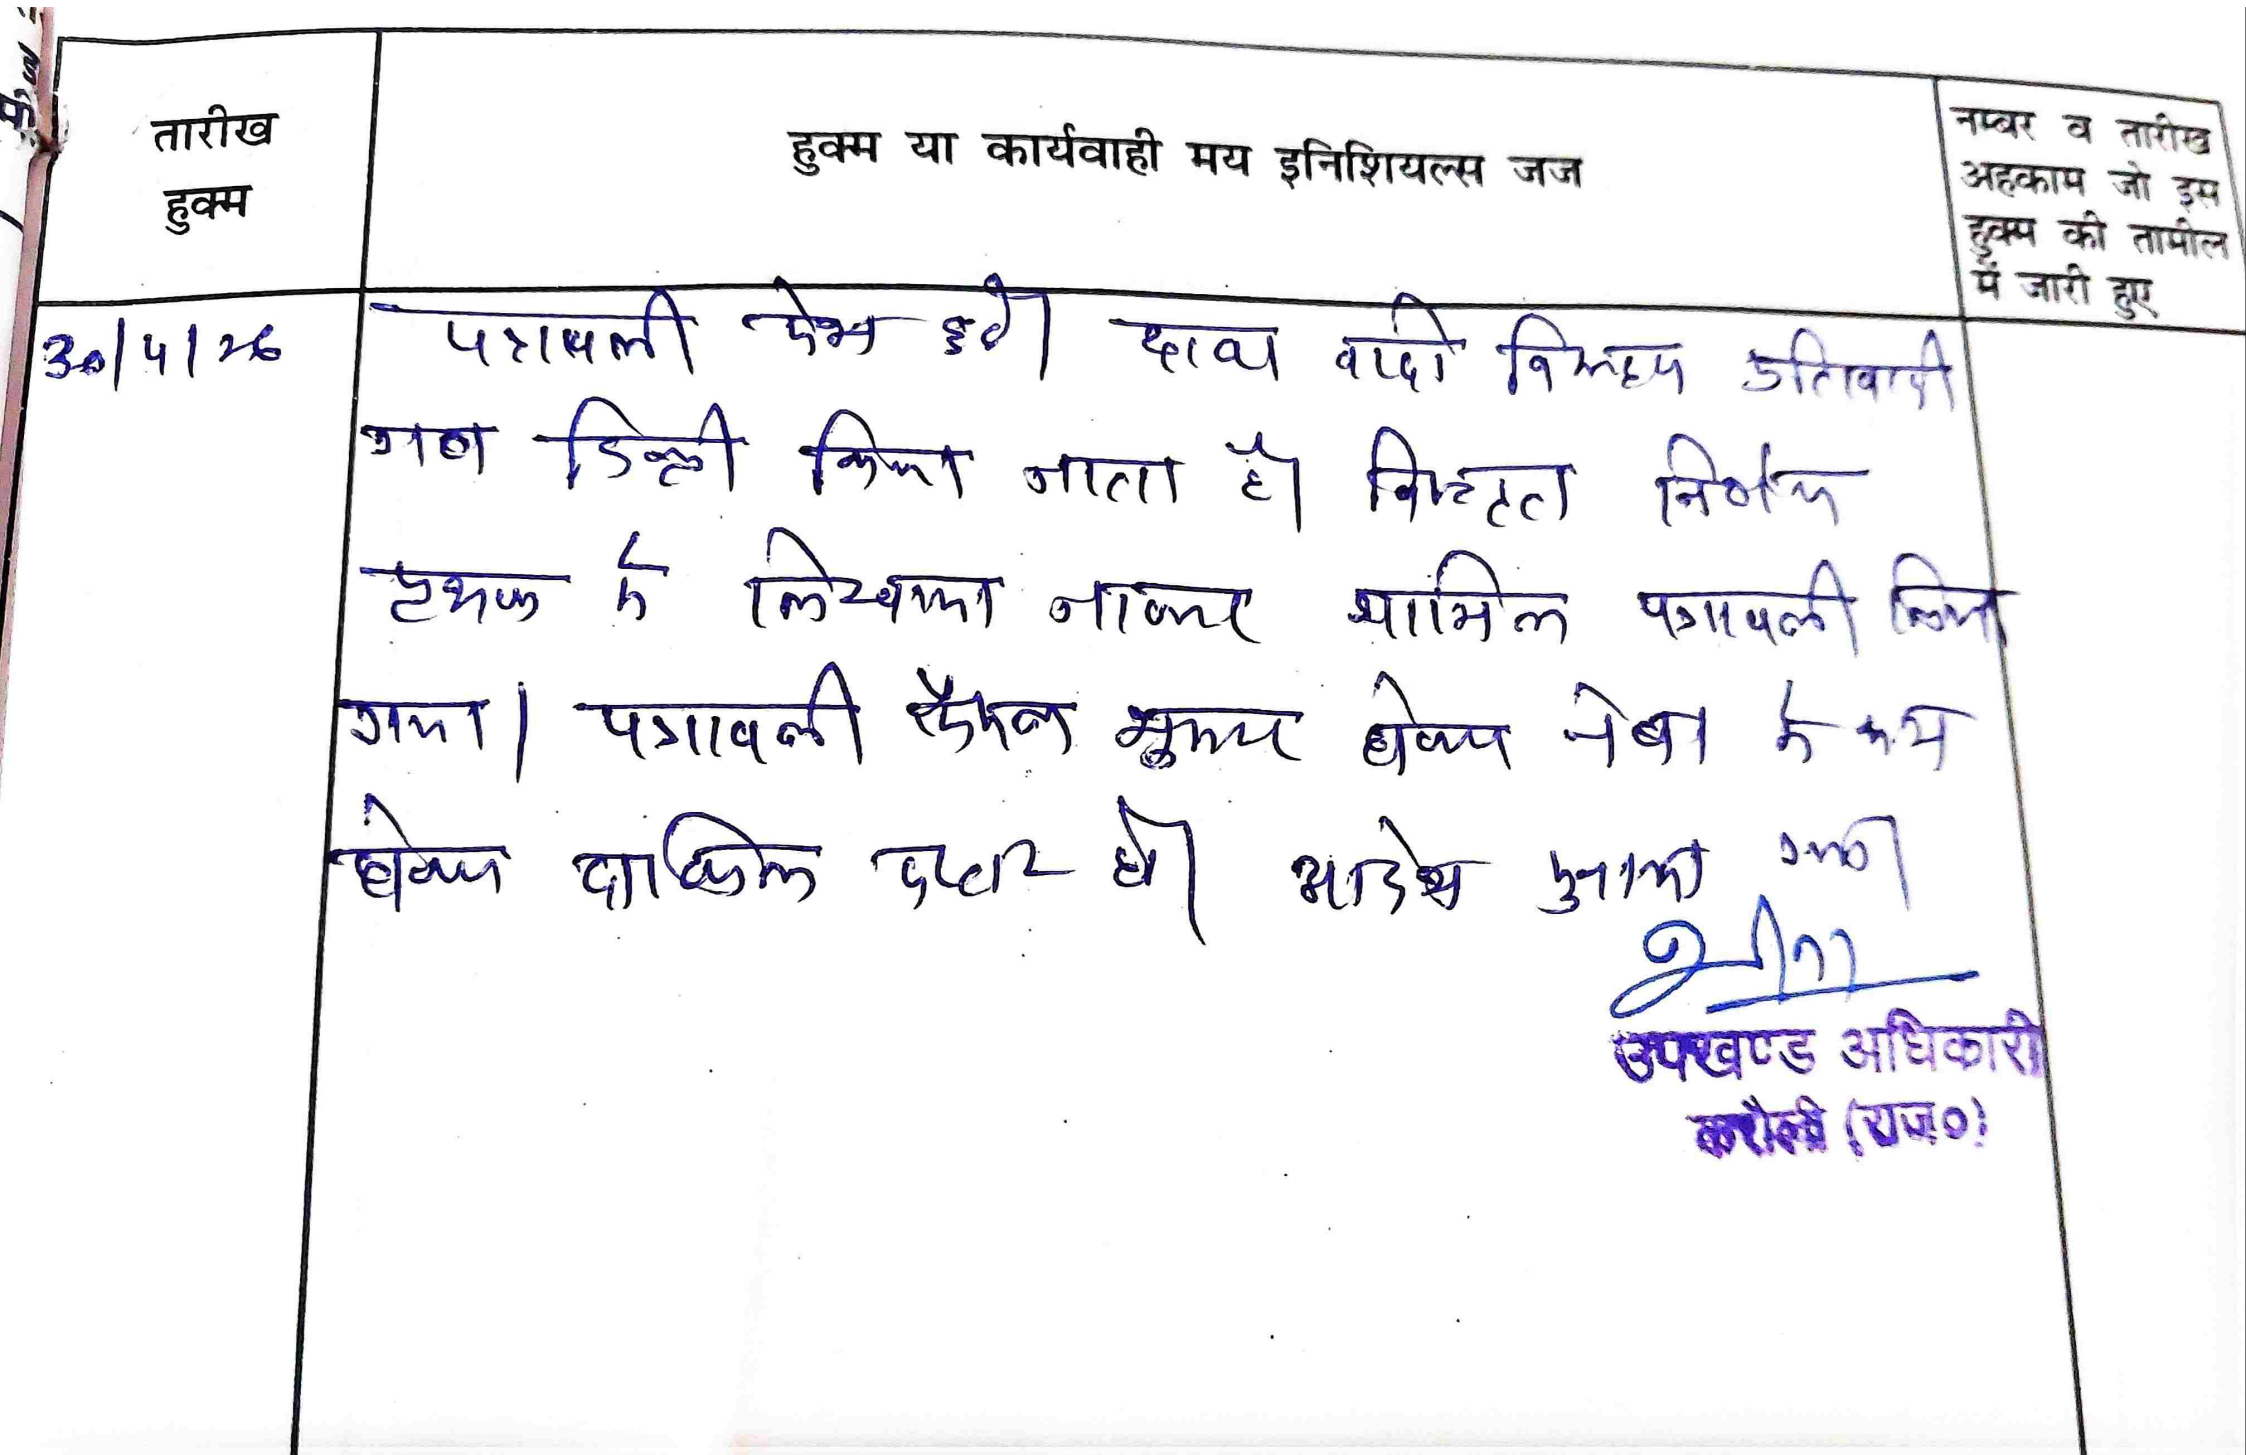 तारीख
हुक्म
हुक्म या कार्यवाही मय इनिशियल्स जज
नम्बर व तारीख
अहकाम जो इस
हुक्म की तामील
में जारी हुए
30/4/26
पत्रावली पेश हुई। दावा वादी विरूद्ध प्रतिवादी
गण डिक्री किया जाता है। विस्तृत निर्णय
पृथक से लिखाया जाकर शामिल पत्रावली किया
गया। पत्रावली फैसल शुमार होकर नम्बर से कम
होकर दाखिल दफ्तर हो। आदेश सुनाया गया।
उपखण्ड अधिकारी
करौली (राज०)